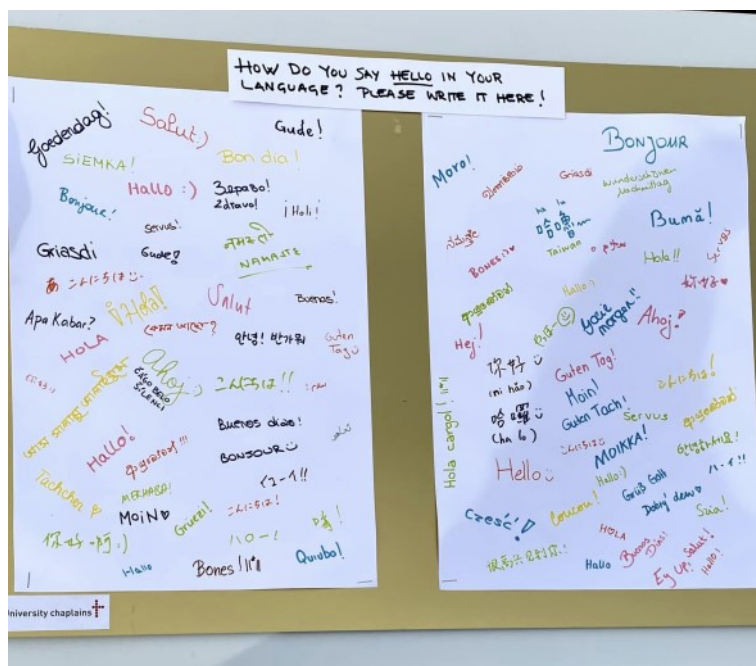 HOW DO YOU SAY HELLO IN YOUR
LANGUAGE? PLEASE WRITE IT HERE!
Goedendag!
Salut :)
Gude!
SIEMKA!
Bon dia!
Bonjour!
Hallo :)
Здраво!
Zdravo!
¡Holi!
Servus!
Griasdi
Gude!
नमस्ते
NAMASTE
こんにちは
¡Hola!
Salut
Buenas!
Apa Kabar?
HOLA
কেমন আছো?
안녕! 반가워
Guten
Tag
Ahoj
こんにちは!!
Hallo!
Buenos dias!
BONJOUR
Tachchen
MERHABA!
イエーイ!!
MOiN
Gruezi!
こんにちは!
你好
ハロー!
Hallo
Bones!
Quiubo!
University chaplains
BONJOUR
Moro!
Griasdi
wunderschönen
Nachmittag
ha lo
哈囉
Taiwan
Bună!
నమస్తే
BONES:)
Hola!!
Servus
Hallo:)
Hej!
Goeie
morgen!
Ahoj!
你好
(ni hǎo)
Guten Tag!
こんにちは!
哈囉
(ha lo)
Moin!
Guten Tach!
Servus
Hola cangol!
こんにちは
MOIKKA!
안녕하세요!
Hello
Hallo:)
Grüß Gott
ハーイ!!
Cześć!
Coucou!
Dobrý den
Szia!
HOLA
很高兴见到你!
Hallo
Buenos
Dias!
Salut!
Ey UP!
Hallo!